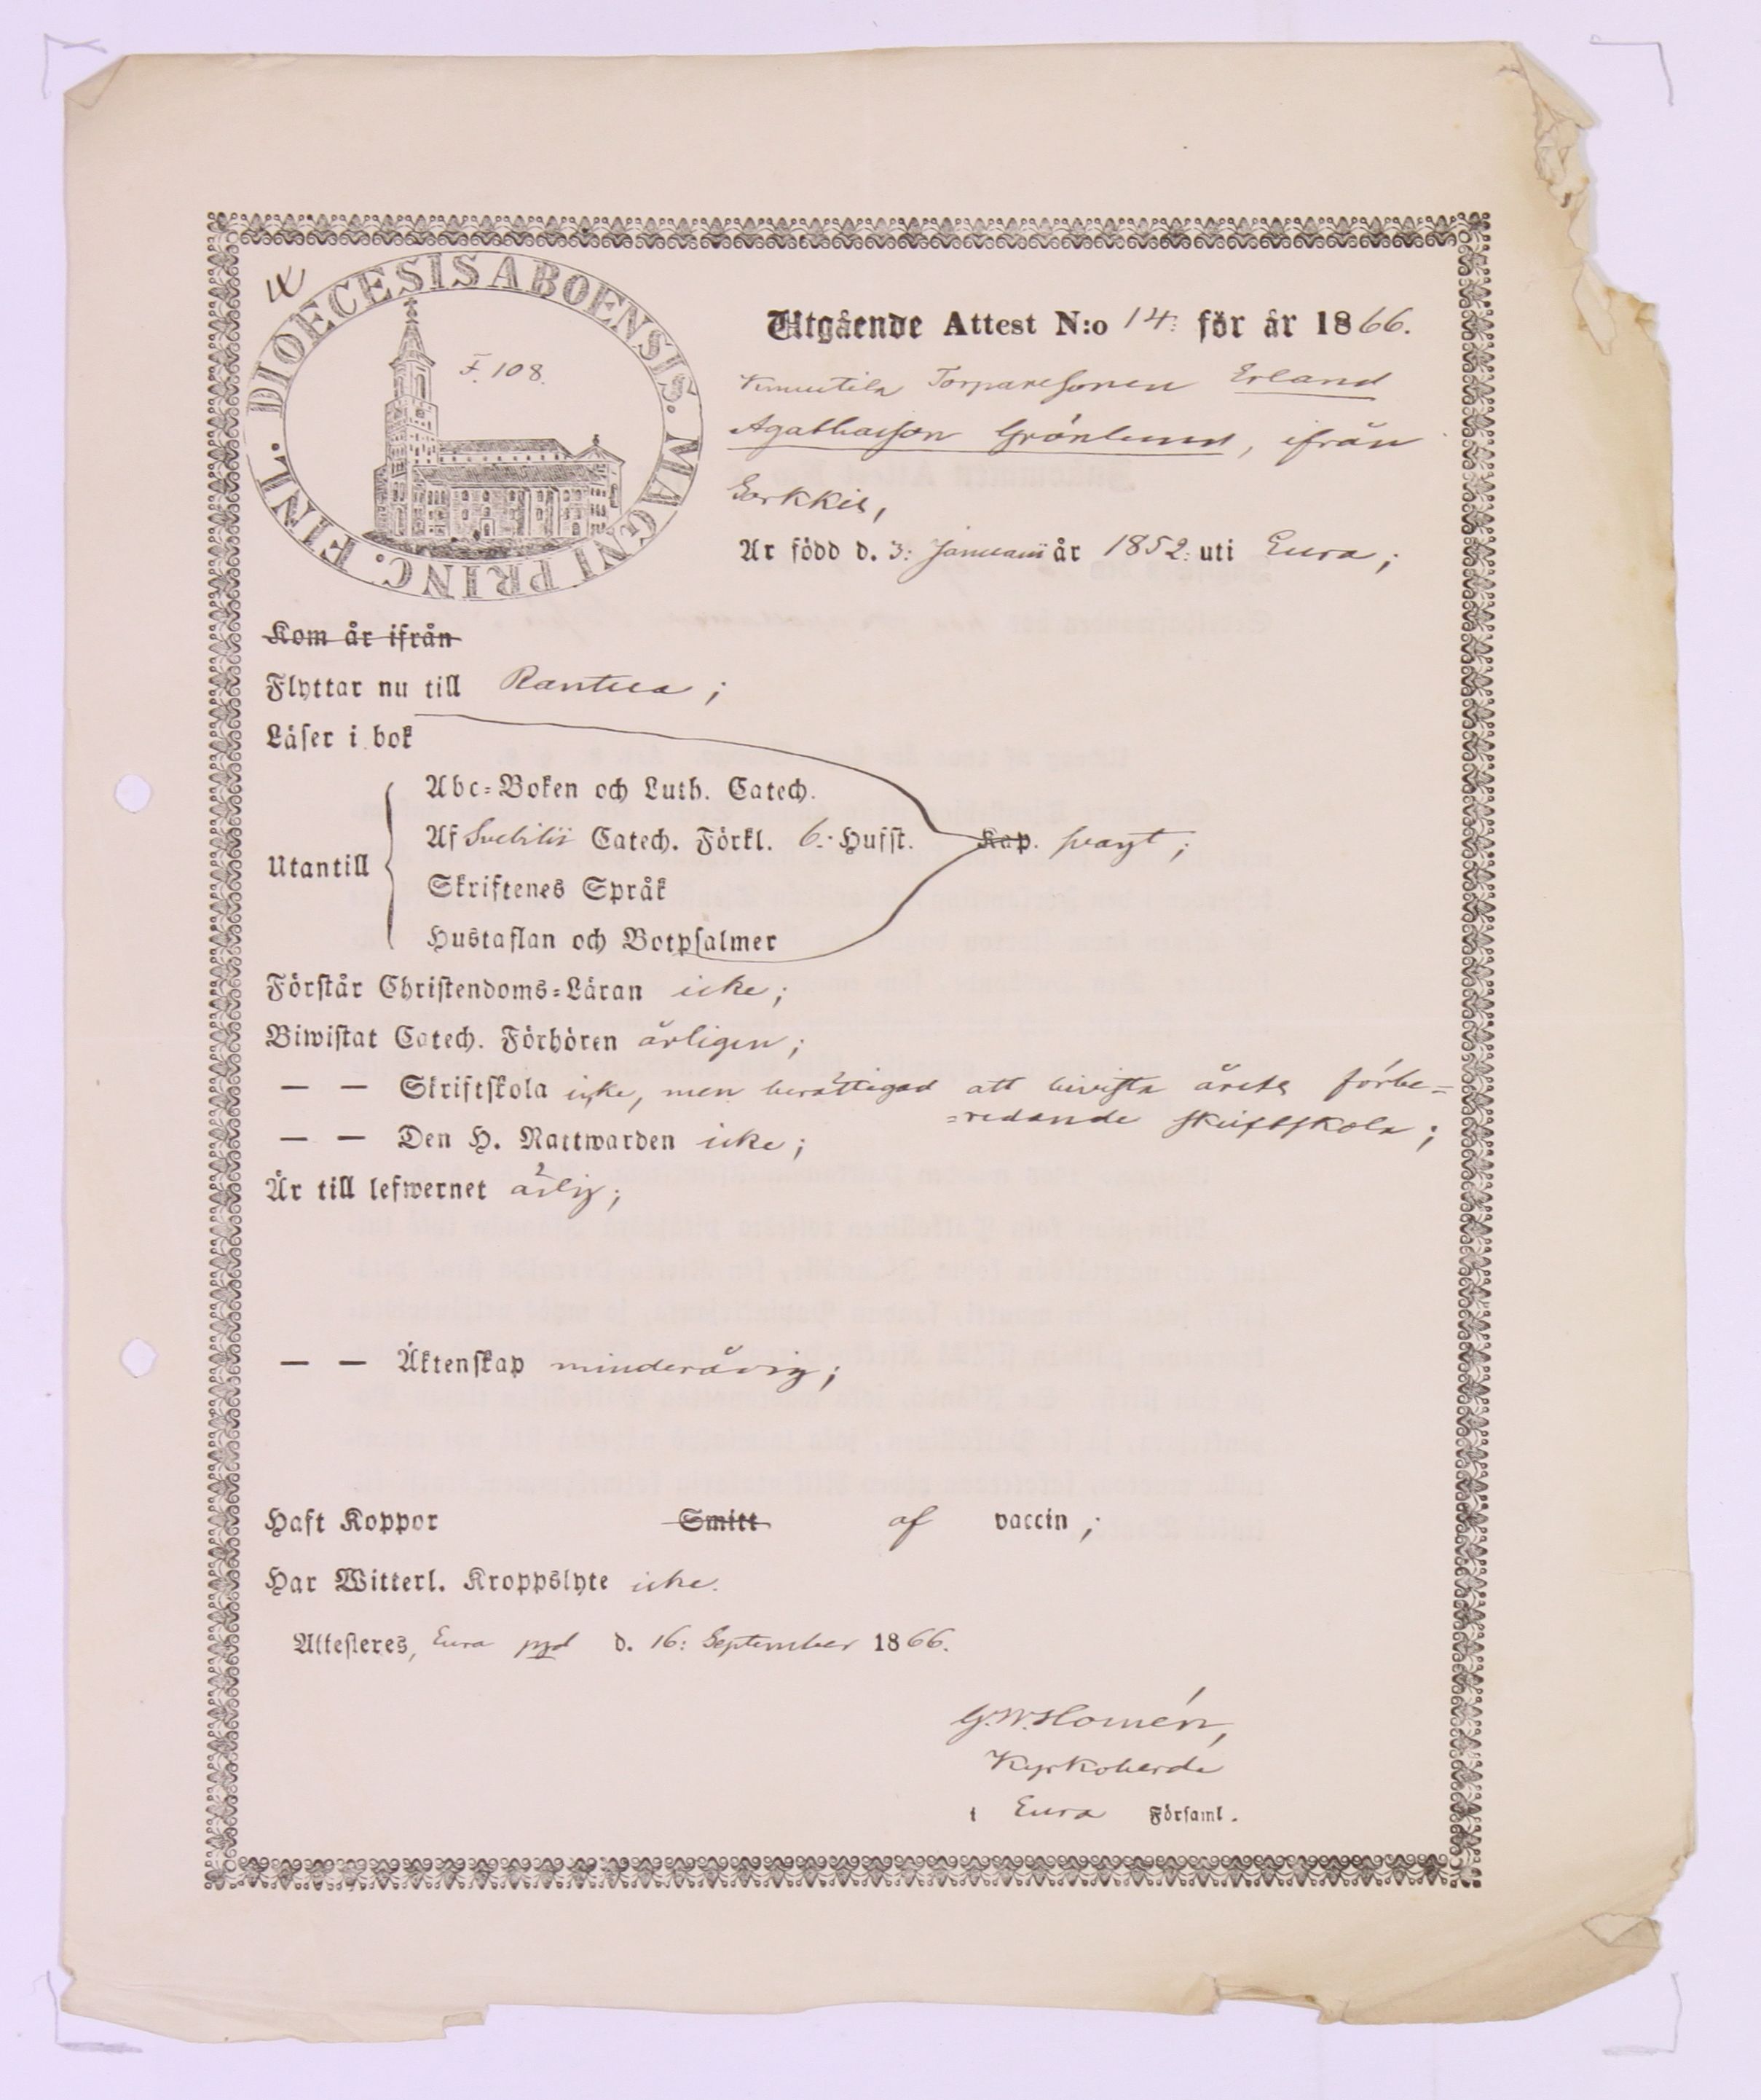 DIOECESIS ABOENSIS. MAGNI PRINC. FINL.
F. 108.
Utgående Attest N:o 14: för år 1866.
Torparesonen Erland
Agathasson Grönlund, ifrån
Är född d. 3: Januarii år 1852: uti Eura;
Kom år ifrån
Flyttar nu till
Läser i bok
Utantill
Abc-Boken och Luth. Catech.
Af Svebilii Catech. Förkl. 6: Hufst. Kap. svagt;
Skriftenes Språk
Hustaflan och Botpsalmer
Förstår Christendoms-Läran icke;
Biwistat Catech. Förhören årligen;
— — Skriftskola icke, men berättigad att bivista årets förbe=
=redande skriftskola;
— — Den H. Nattwarden icke;
Är till lefwernet ärlig;
— — Äktenskap minderårig;
Haft Koppor Smitt af vaccin;
Har Witterl. Kroppslyte icke.
Attesteres, Eura pgd d. 16: September 1866.
G. W. Homén,
Kyrkoherde
i Eura Församl.